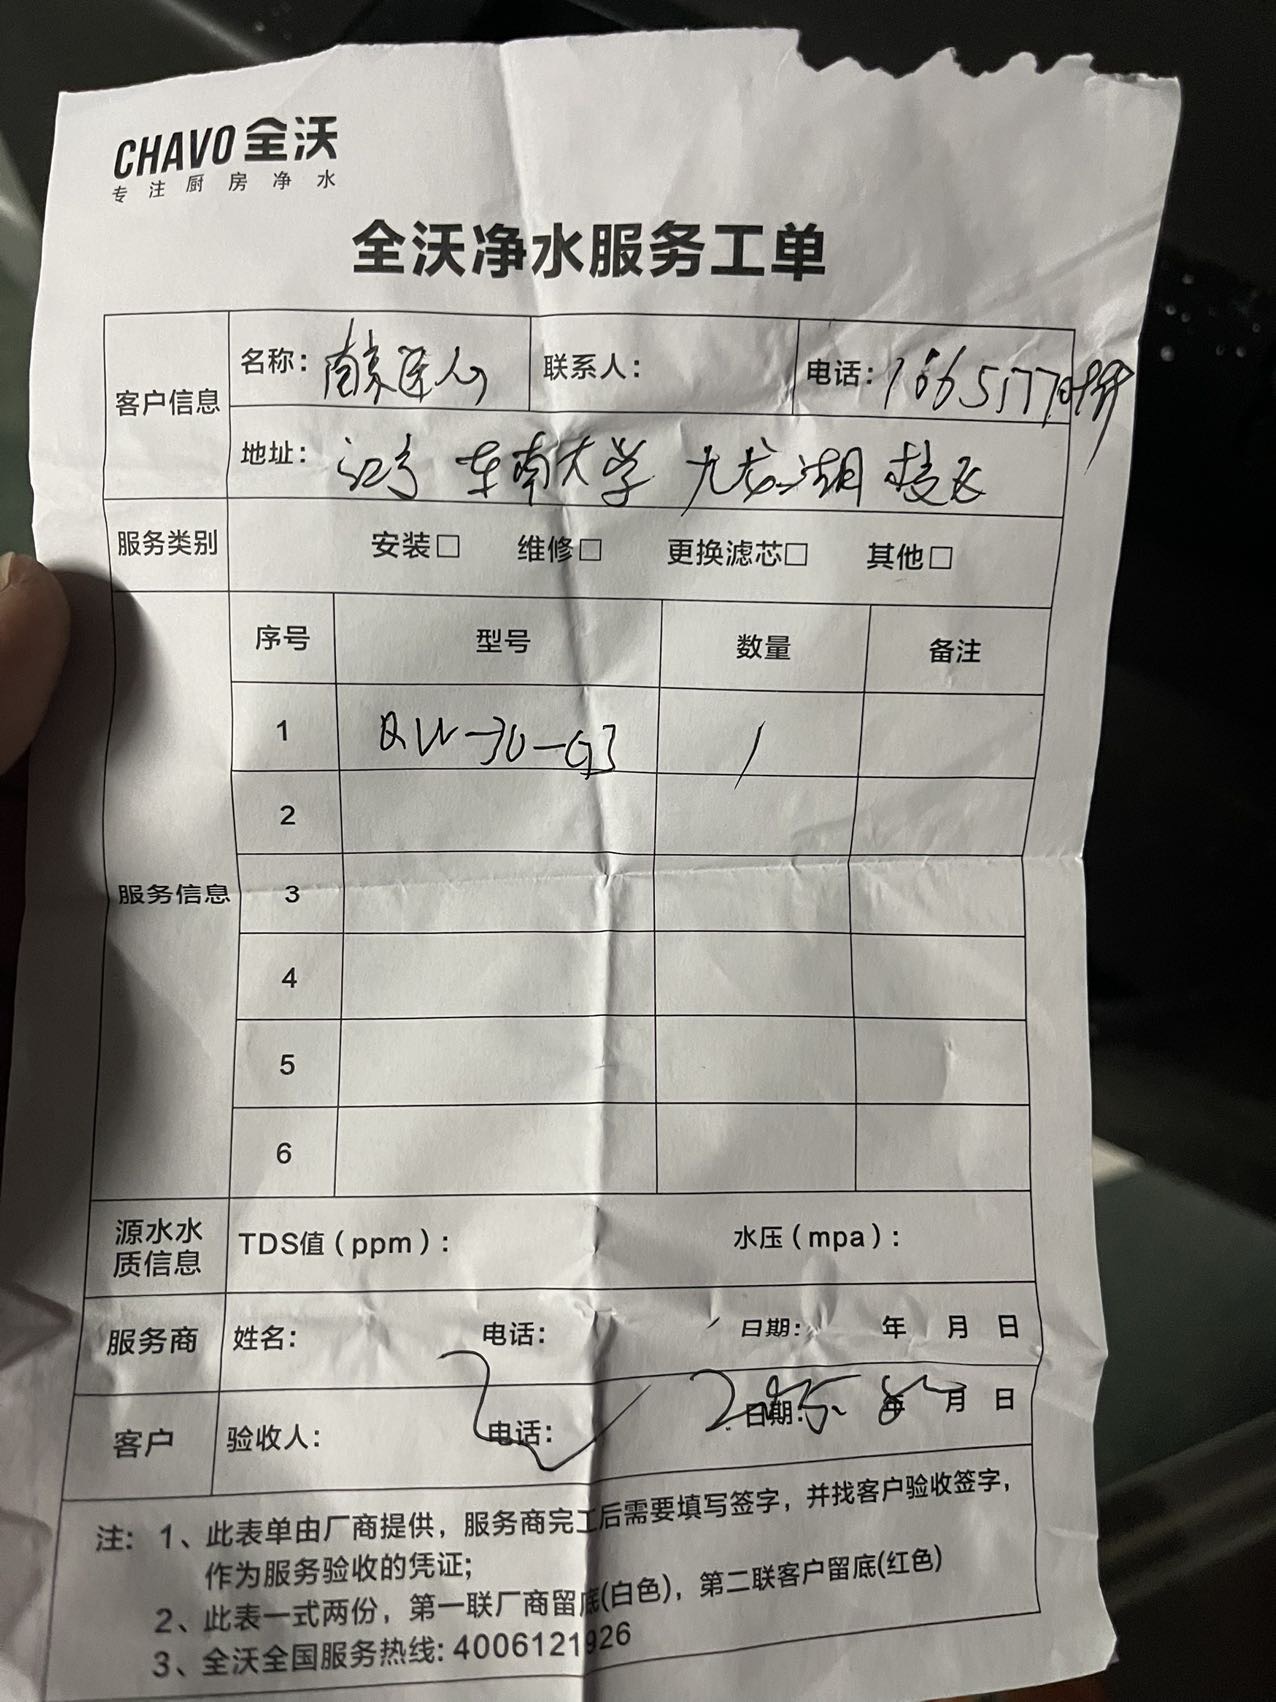 CHAVO 全沃
专注厨房净水
全沃净水服务工单
客户信息 名称：南京匠人 联系人： 电话：
地址：江宁 东南大学 九龙湖 校区
服务类别 安装□ 维修□ 更换滤芯□ 其他□
服务信息
序号 型号 数量 备注
1 QW-30-G3 1
2
3
4
5
6
源水水质信息 TDS值（ppm）： 水压（mpa）：
服务商 姓名： 电话： 日期： 年 月 日
客户 验收人： 电话： 日期： 年 月 日
注：1、此表单由厂商提供，服务商完工后需要填写签字，并找客户验收签字，
作为服务验收的凭证；
2、此表一式两份，第一联厂商留底(白色)，第二联客户留底(红色)
3、全沃全国服务热线：4006121926